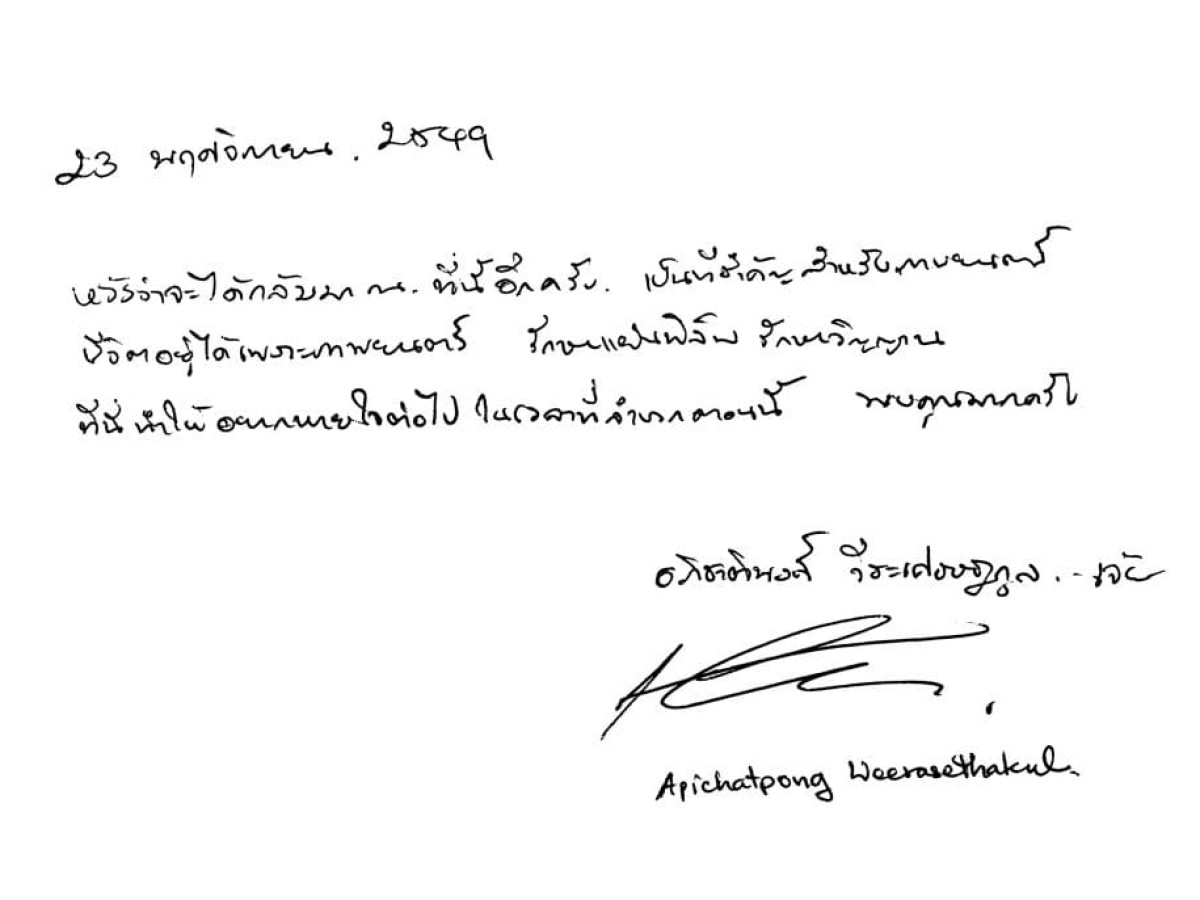 23 พฤศจิกายน . 2549
หวังว่าจะได้กลับมา ณ. ที่นี้อีกครับ. เป็นที่สำคัญ สำหรับภาพยนตร์
ชีวิตอยู่ได้เพราะภาพยนตร์ รักษาแผ่นฟิล์ม รักษาวิญญาณ
ที่นี่ ทำให้ อยากหายใจต่อไป ในเวลาที่ลำบากตอนนี้ ขอบคุณมากครับ
อภิชาติพงศ์ วีระเศรษฐกุล . - เจ้ย
Apichatpong Weerasethakul.